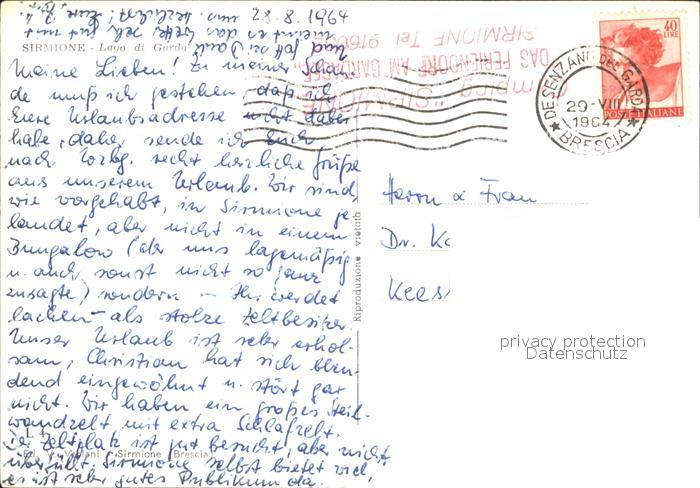 28.8.1964
SIRMIONE - Lago di Garda
Meine Lieben! Zu meiner Schan-
de muß ich gestehen, daß ich
Eure Urlaubsadresse nicht dabei
habe, daher sende ich Euch
nach Wzbg. recht herzliche Grüße
aus unserem Urlaub. Wir sind,
wie vorgehabt, in Sirmione ge-
landet, aber nicht in einem
Bungalow (der uns lagemäßig
u. auch sonst nicht so ganz
zusagte) sondern – Ihr werdet
lachen – als stolze Zeltbesitzer.
Unser Urlaub ist sehr erhol-
sam, Christian hat sich blen-
dend eingewöhnt u. stört gar
nicht. Wir haben ein großes Steil-
wandzelt mit extra Schlafzelt.
Der Zeltplatz ist gut besucht, aber nicht
überfüllt. Sirmione selbst bietet viel,
es ist sehr gutes Publikum da.
Sirmione (Brescia)
Camping "SIRMIONE"
DAS FERIENDORF AM GARDASEE
SIRMIONE Tel.
DESENZANO DEL GARDA
29-VIII
1964
BRESCIA
40
LIRE
POSTE ITALIANE
Riproduzione vietata
Herrn & Frau
Dr. K
Kees
privacy protection
Datenschutz